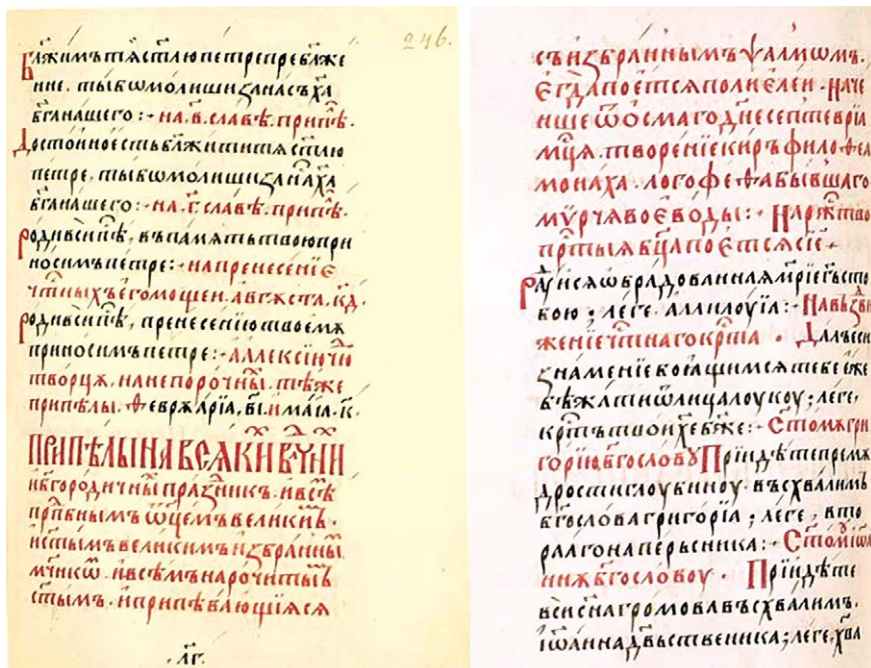 246.
Бл҃жимъ тѧ ст҃лю петре пребл҃же
ние. ты бѡ молиши за насъ х҃а
б҃га нашего :· на .в҃. славѣ. припѣ.
Достойно есть бл҃жити тѧ ст҃лю
петре, ты бѡ молиши за на х҃а
б҃га нашего :· на .г҃. славѣ. припѣ.
Родивсѧ п̾сѣ, въ память твою при
носимъ петре :· на пренесенїе
чтⷭныхъ его мощеи. авгꙋста. кд҃.
Родивсѧ п̾сѣ, пренесенїю твоемꙋ
приносимъ петре :· аллеѯїи чю
творцꙋ. и на непорочны. тѣже
припѣлы. феврꙋарїа. в҃і. и маїа. к҃.
ПРИПѢЛЫ НА ВСѦКИ ВЧ҃НИ
и бг҃ородичны праздникъ. и всѣ
прп҃бнымъ ѿц҃емъ великимъ.
и ст҃ымъ великимъ избранны
мч҃нкѡ. и всѣмъ нарочитымъ
ст҃ымъ. и припѣвающїѧсѧ
.л҃г.
съ избраннымъ ѱалмѡмъ.
Єгда поется полиєлеи. Наче
нше ѿ осмаго дне септеврїа
мц҃а. творенїе киръ филофеа
монаха. логофефа бывшаго
мѵрчꙗ воєводы :· На ржⷭтво
прⷭтыꙗ бц҃а поєтсѧ сїе ·
Раꙋисѧ ѡбрадованнаꙗ мр҃їе гь҃ съ то
бою ; леге. аллилоуїа :· На въздви
женїе чтⷭнаго крⷭта . Далъ еси
знаменїе боꙗщимсѧ тебе еже
бѣжати ѿ лица лоукоу ; леге,
крⷭтъ твои х҃е бж҃е :· Ст҃омꙋ гри
горїю, бг҃ословꙋ Прїидѣте прем҃ꙋ
дрости глоубиноу. въсхвалимъ
бг҃ослова григорїа ; леге, вто
рааго наперьсника :· Ст҃омꙋ іѡа
ннꙋ бг҃ословоу . Прїидѣте
вси сн҃а громова въсхвалимъ.
іѡанна дв҃ьственика ; леге, хва